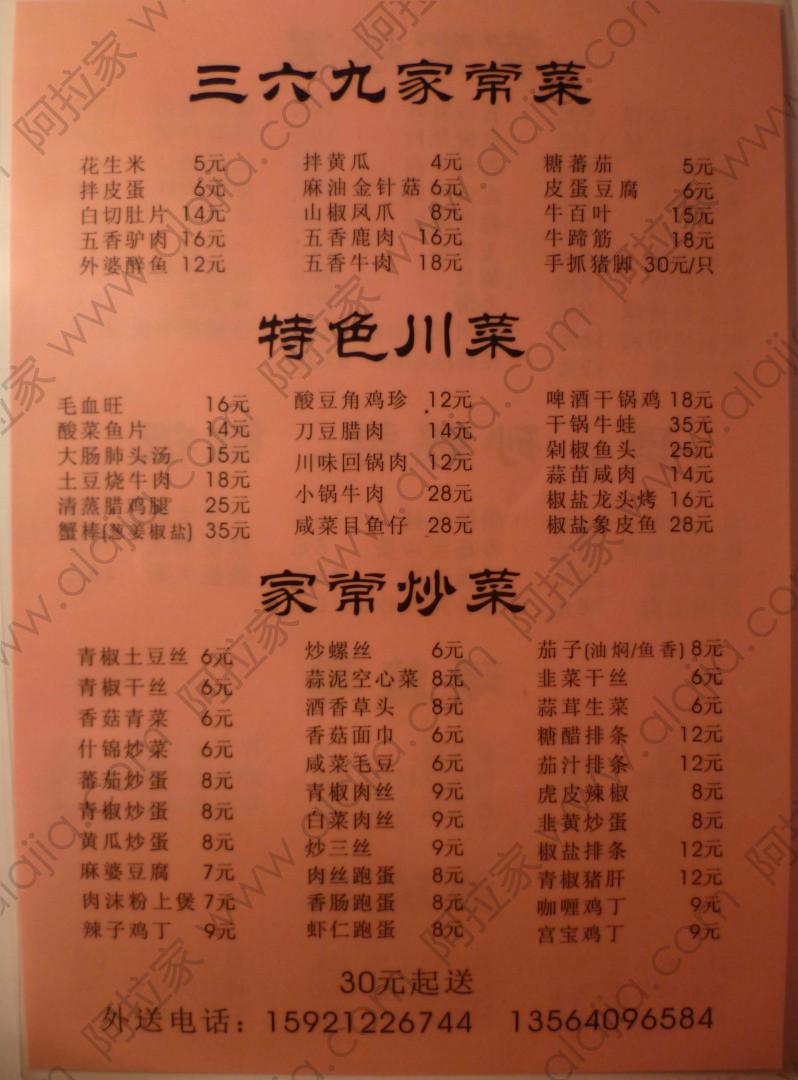 三六九家常菜
花生米 5元 拌黄瓜 4元 糖蕃茄 5元
拌皮蛋 6元 麻油金针菇 6元 皮蛋豆腐 6元
白切肚片 14元 山椒凤爪 8元 牛百叶 15元
五香驴肉 16元 五香鹿肉 16元 牛蹄筋 18元
外婆醉鱼 12元 五香牛肉 18元 手抓猪脚 30元/只
特色川菜
毛血旺 16元 酸豆角鸡珍 12元 啤酒干锅鸡 18元
酸菜鱼片 14元 刀豆腊肉 14元 干锅牛蛙 35元
大肠肺头汤 15元 川味回锅肉 12元 剁椒鱼头 25元
土豆烧牛肉 18元 小锅牛肉 28元 蒜苗咸肉 14元
清蒸腊鸡腿 25元 咸菜目鱼仔 28元 椒盐龙头烤 16元
蟹棒(葱姜椒盐) 35元 椒盐象皮鱼 28元
家常炒菜
青椒土豆丝 6元 炒螺丝 6元 茄子(油焖/鱼香) 8元
青椒干丝 6元 蒜泥空心菜 8元 韭菜干丝 6元
香菇青菜 6元 酒香草头 8元 蒜茸生菜 6元
什锦炒菜 6元 香菇面巾 6元 糖醋排条 12元
蕃茄炒蛋 8元 咸菜毛豆 6元 茄汁排条 12元
青椒炒蛋 8元 青椒肉丝 9元 虎皮辣椒 8元
黄瓜炒蛋 8元 白菜肉丝 9元 韭黄炒蛋 8元
麻婆豆腐 7元 炒三丝 9元 椒盐排条 12元
肉沫粉上煲 7元 肉丝跑蛋 8元 青椒猪肝 12元
辣子鸡丁 9元 香肠跑蛋 8元 咖喱鸡丁 9元
虾仁跑蛋 8元 宫宝鸡丁 9元
30元起送
外送电话：15921226744 13564096584
阿拉家 www.alajia.com